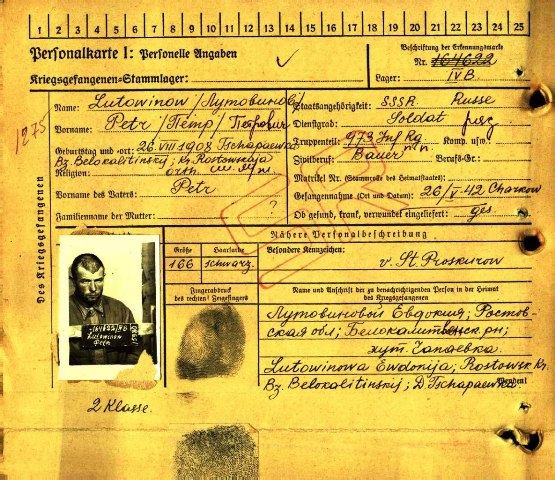 1 2 3 4 5 6 7 8 9 10 11 12 13 14 15 16 17 18 19 20 21 22 23 24 25
Personalkarte I: Personelle Angaben
Beschriftung der Erkennungsmarke
Nr. 164622
Kriegsgefangenen-Stammlager:
Lager: IV B
Des Kriegsgefangenen
1275
Name: Lutowinow / Лутовинов
Staatsangehörigkeit: SSSR. Russe
Vorname: Petr / Пётр / Петрович
Dienstgrad: Soldat
Truppenteil: 973 Inf Rg. Komp. usw.:
Geburtstag und -ort: 26.VIII 1908 Tschapaewka
Zivilberuf: Bauer Berufs-Gr.:
Bz. Belokalitinskij; Kr. Rostowskaja
Religion: orth.
Matrikel Nr. (Stammrolle des Heimatstaates):
Vorname des Vaters: Petr
Gefangennahme (Ort und Datum): 26/V-42 Charkow
Familienname der Mutter: ?
Ob gesund, krank, verwundet eingeliefert: ges.
Nähere Personalbeschreibung
Größe
Haarfarbe
Besondere Kennzeichen:
166
schwarz.
v. St. Proskurow
Fingerabdruck
des rechten! Zeigefingers
Name und Anschrift der zu benachrichtigenden Person in der Heimat
des Kriegsgefangenen
Лутовиновой Евдокия; Ростов-
ская обл; Белокалитвенск. рн;
хут. Чапаевка.
Lutowinowa Ewdonija; Rostowsk Kr.
Bz. Belokalitinskij; D. Tschapaewka
Lutowinow
Petr
2 Klasse.